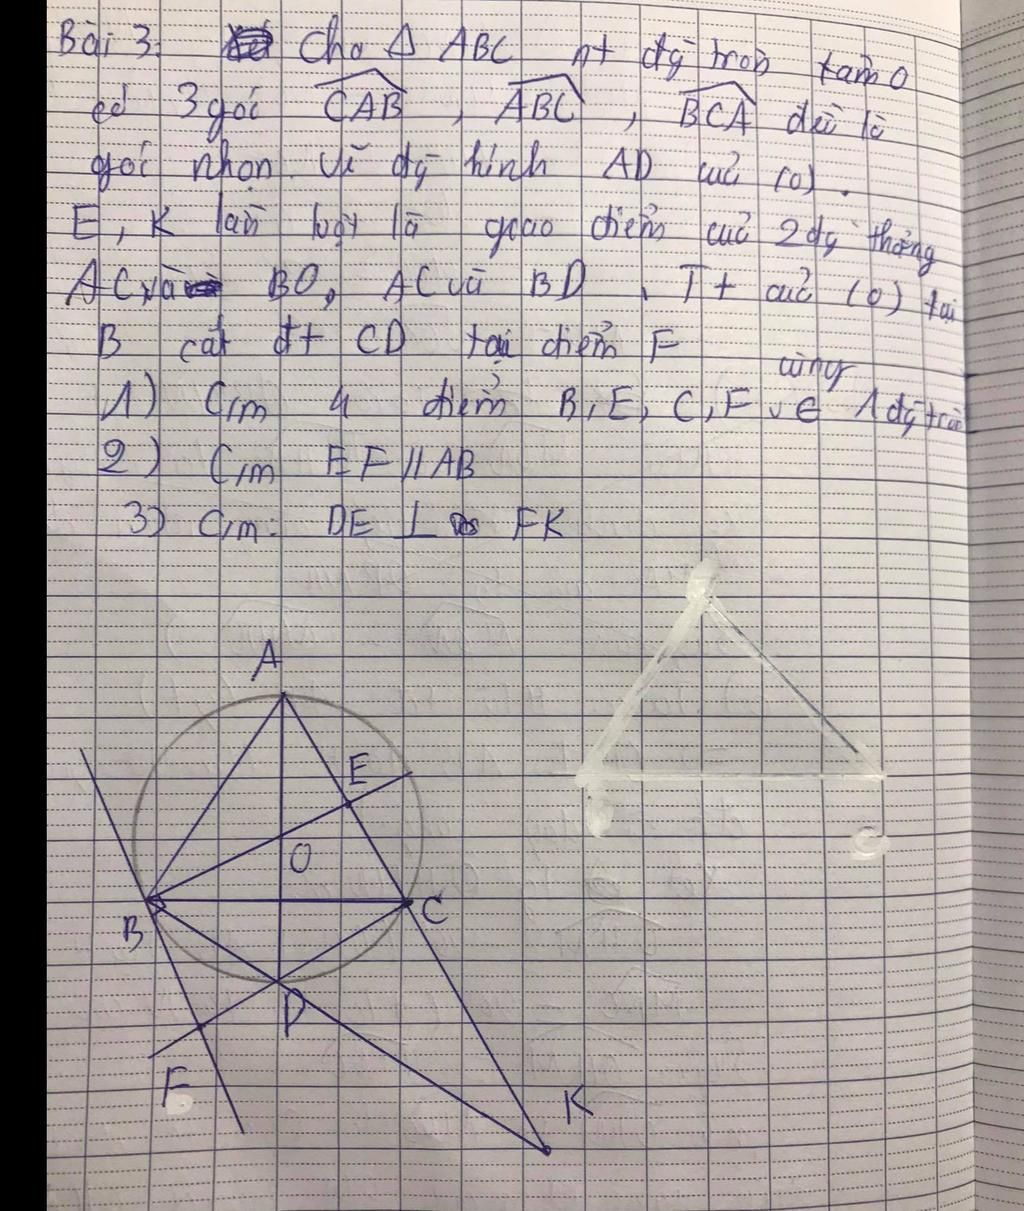 Bài 3: Cho Δ ABC nt đg tròn tâm O
có 3 góc CAB, ABC, BCA đều là
góc nhọn. Vẽ đg kính AD của (O).
E, K lần lượt là giao điểm của 2 đg thẳng
AC và BO, AC và BD. Tt của (O) tại
B cắt đt CD tại điểm F
1) C/m 4 điểm B, E, C, F cùng ∈ 1 đg tròn
2) C/m EF // AB
3) C/m: DE ⊥ FK
A
E
O
B
C
D
F
K
C